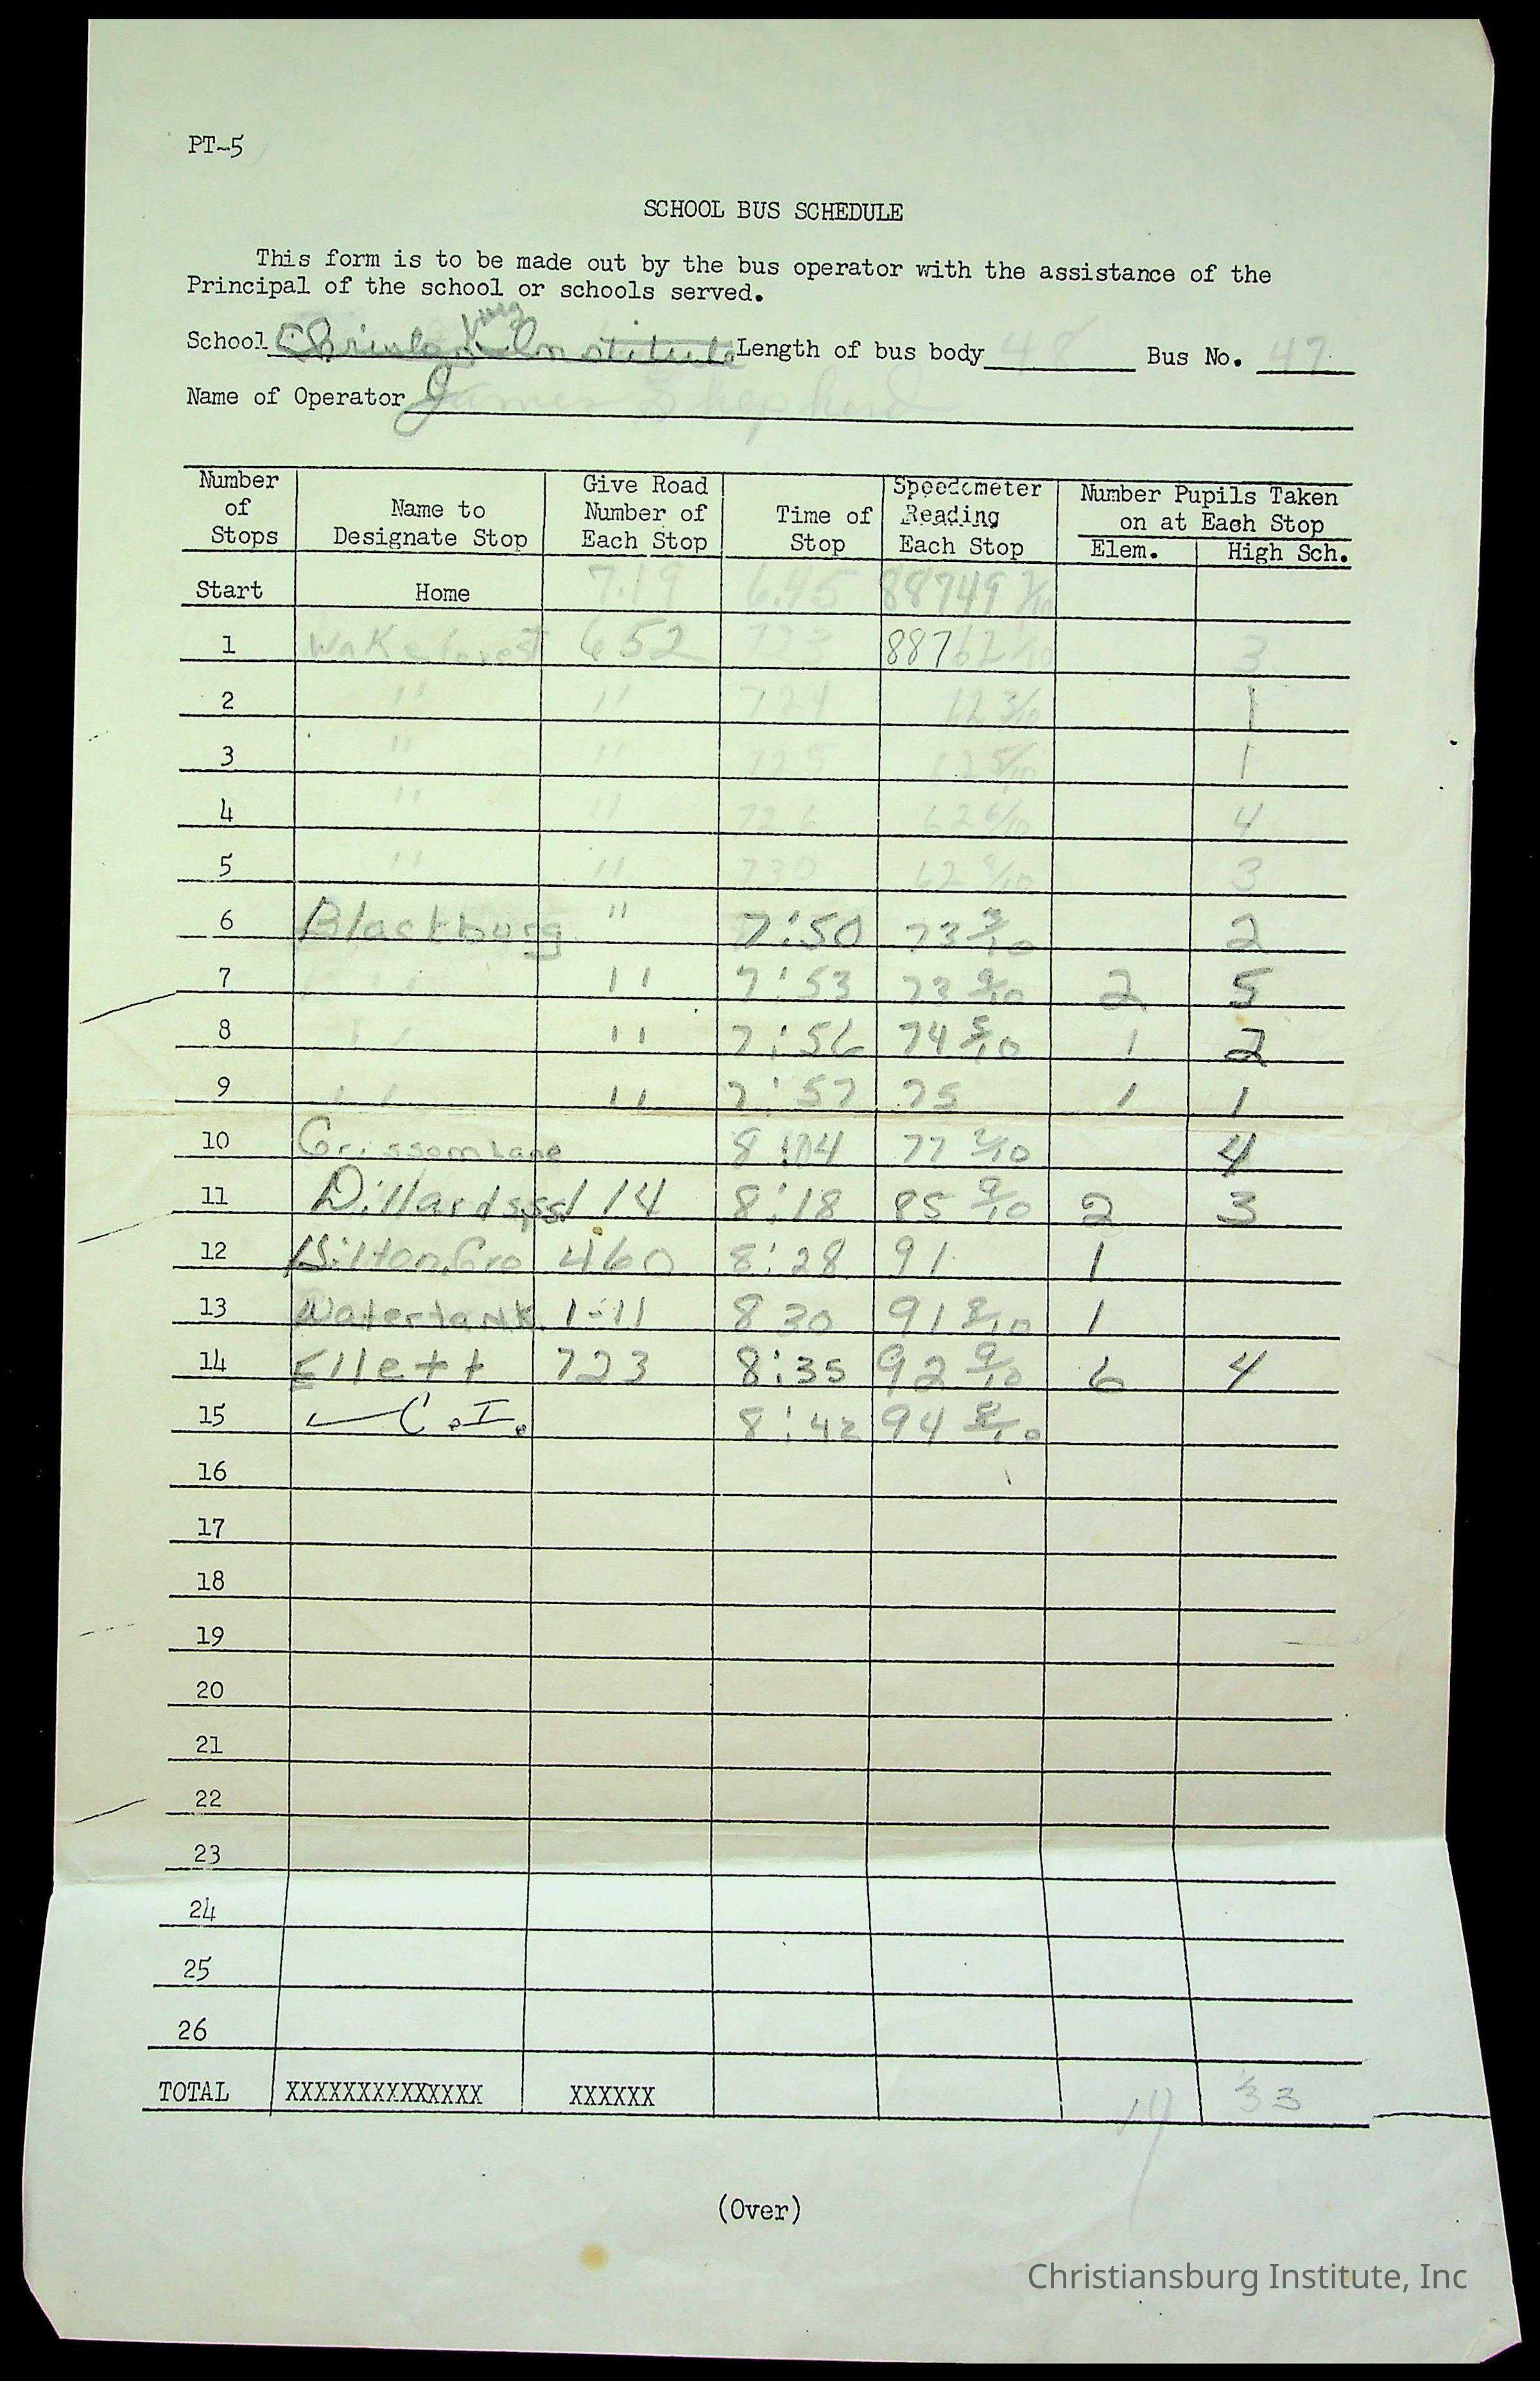 PT-5
SCHOOL BUS SCHEDULE
This form is to be made out by the bus operator with the assistance of the
Principal of the school or schools served.
School Institute Length of bus body 48 Bus No. 47
Name of Operator James Shepherd
Number of Stops | Name to Designate Stop | Give Road Number of Each Stop | Time of Stop | Speedometer Reading Each Stop | Number Pupils Taken on at Each Stop
Elem. | High Sch.
Start Home 7.19 6.45 88749 7/10
1 Wake forest 652 723 88762 1/10 3
2 " " 724 62 3/10 1
3 " " 725 62 5/10 1
4 " " 726 62 6/10 4
5 " " 730 62 8/10 3
6 Blackburg " 7:50 73 3/10 2
7 " " 7:53 73 9/10 2 5
8 " " 7:56 74 5/10 1 2
9 " " 7:57 75 1 1
10 Grissom Lane 8:04 77 2/10 4
11 Dillards,ss. 114 8:18 85 9/10 2 3
12 Hilton,Gro 460 8:28 91 1
13 Watertank. 1-11 8 30 91 8/10 1
14 Ellett 723 8:35 92 9/10 6 4
15 C.I. 8:42 94 8/10
16
17
18
19
20
21
22
23
24
25
26
TOTAL XXXXXXXXXXXXXX XXXXXX 14 33
(Over)
Christiansburg Institute, Inc